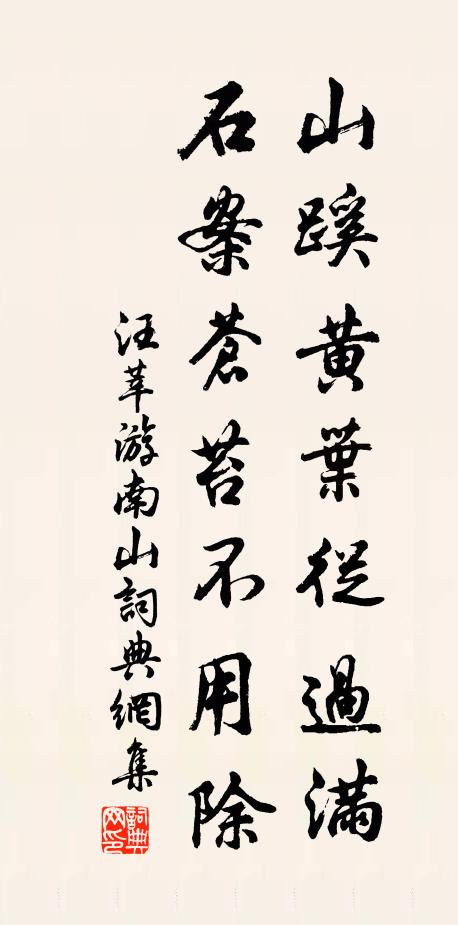 山蹊黄葉從過滿
石案蒼苔不用除
汪莘游南山詞典網集
詞典網印